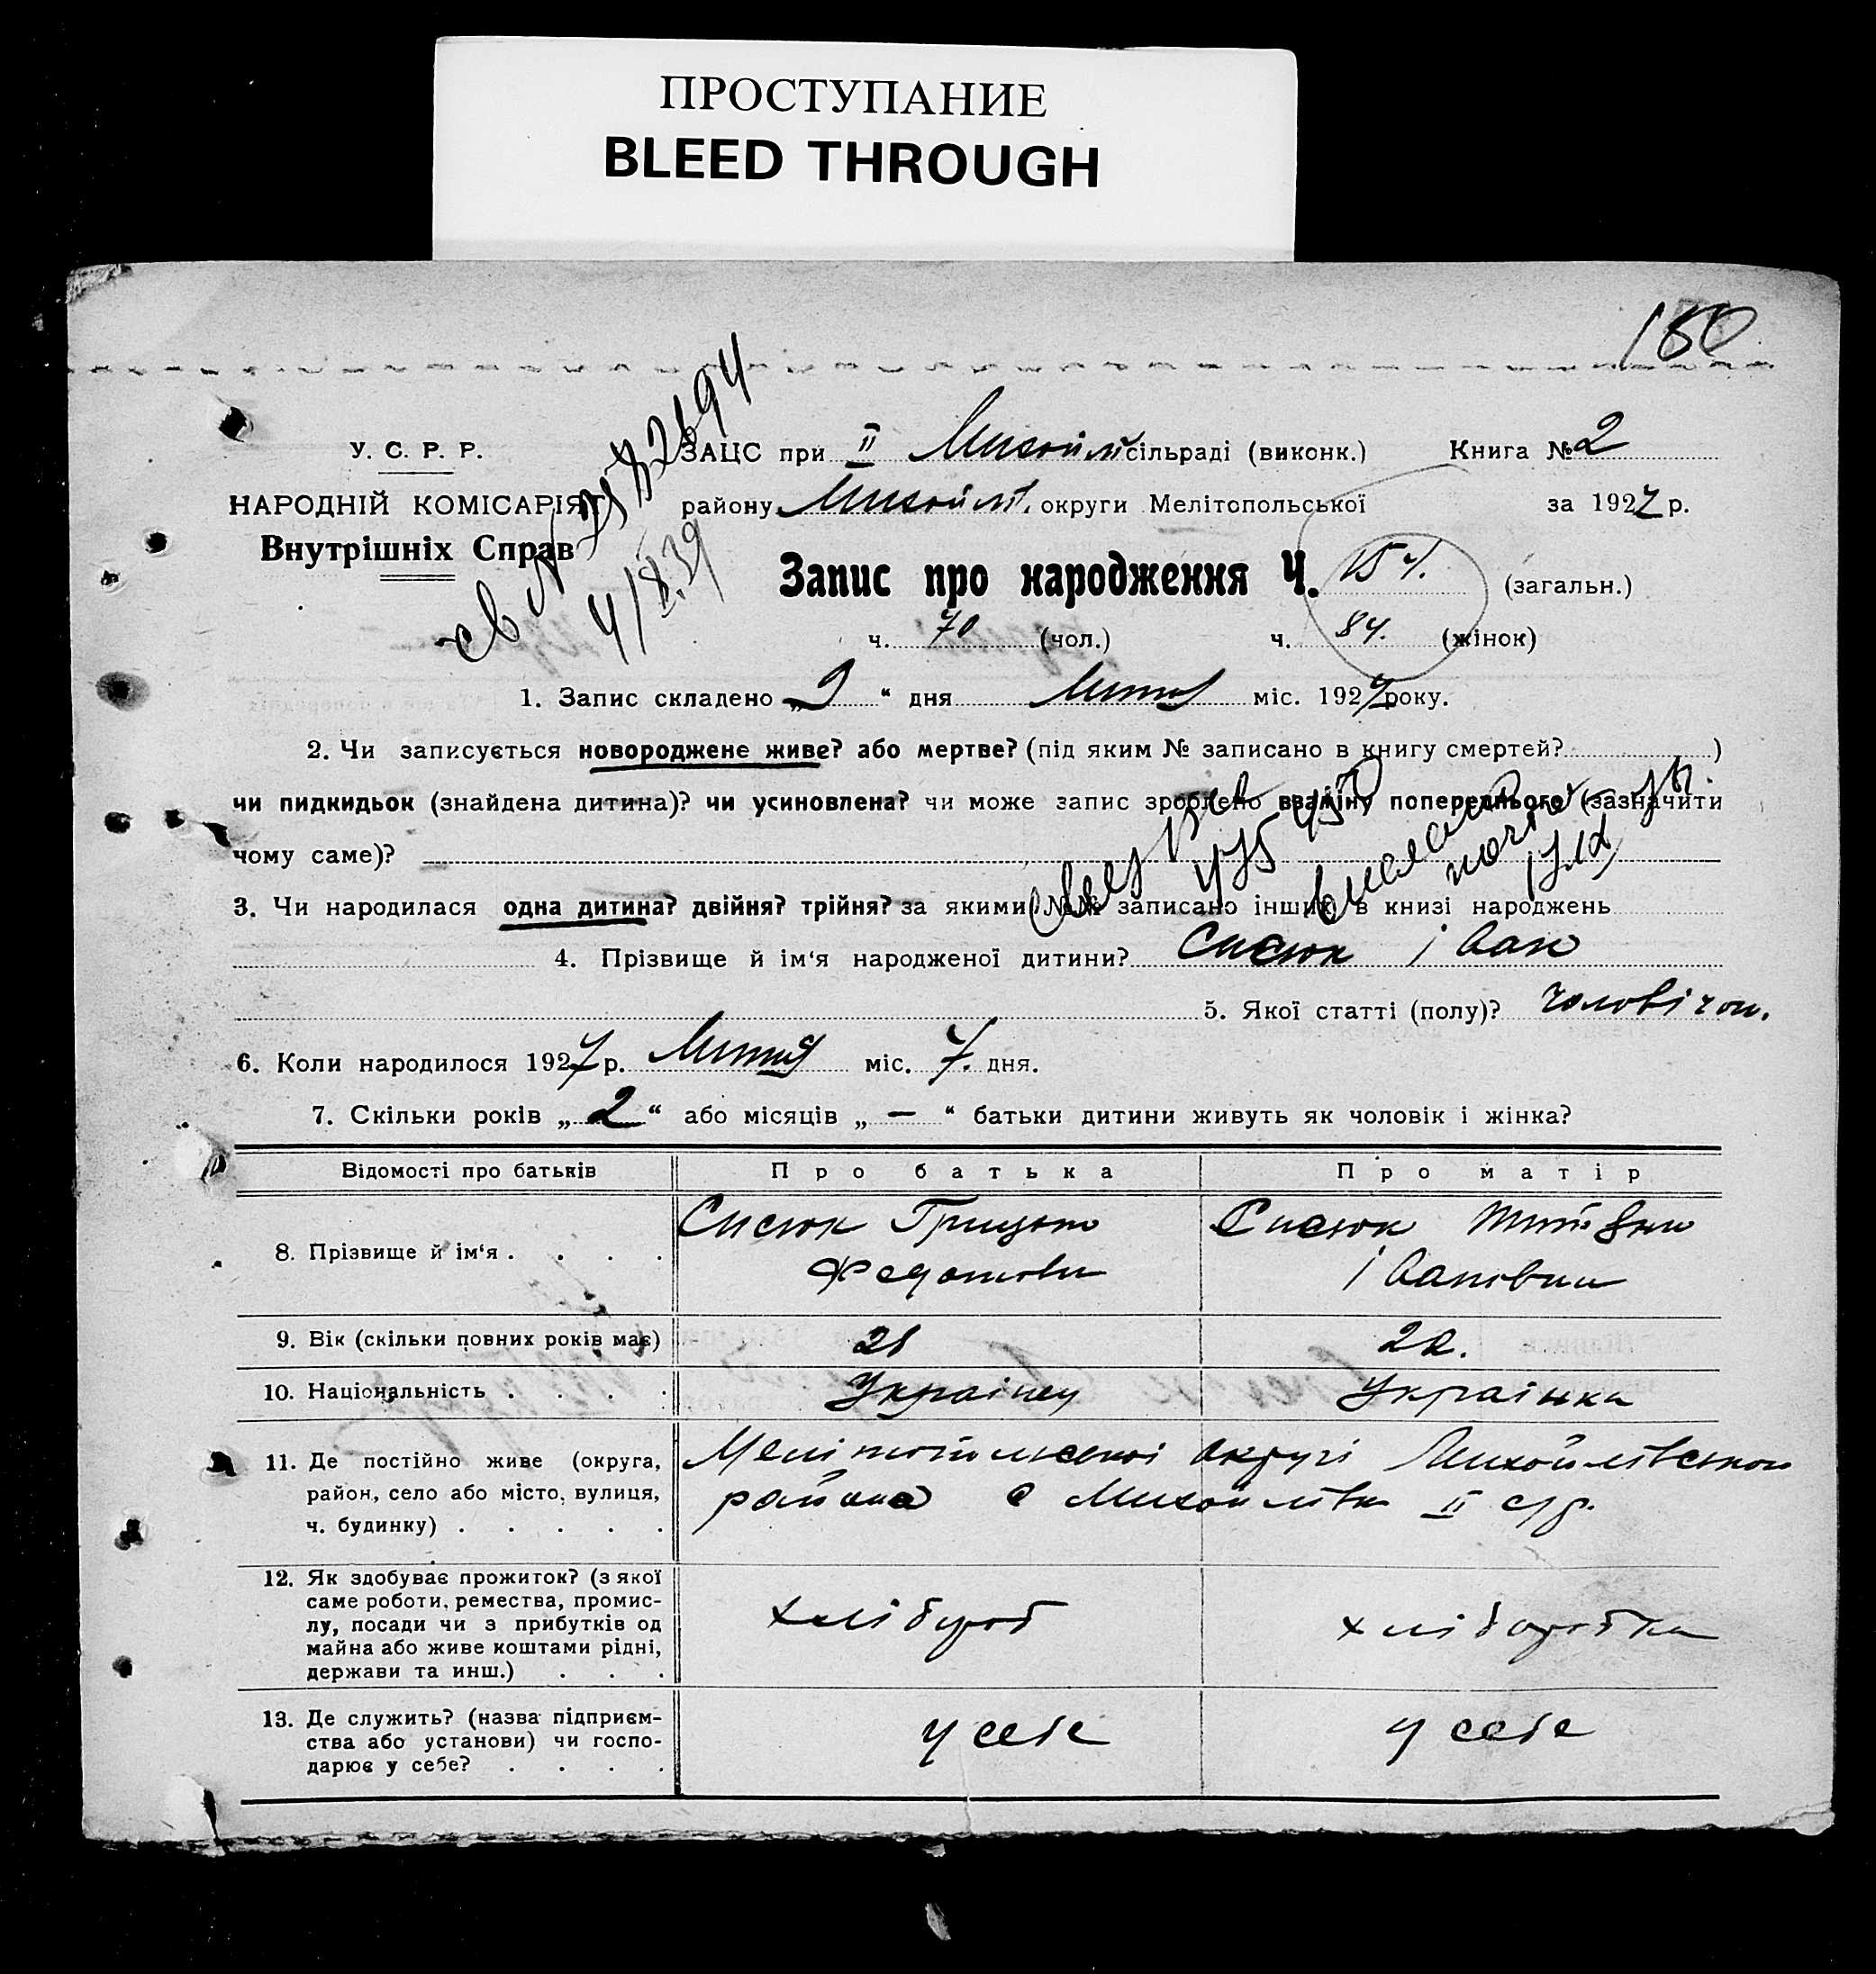 ПРОСТУПАНИЕ
BLEED THROUGH
180
У. С. Р. Р.
НАРОДНІЙ КОМІСАРІЯТ
Внутрішніх Справ
4/X.39
ЗАЦС при II Михайл сільраді (виконк.) Книга № 2
району Михайл. округи Мелітопольської за 1927 р.
Запис про народження Ч. 154. (загальн.)
ч. 70 (чол.) ч. 84. (жінок)
1. Запис складено „9“ дня Лютня міс. 1927 року.
2. Чи записується новороджене живе? або мертве? (під яким № записано в книгу смертей? )
чи пидкидьок (знайдена дитина)? чи усиновлена? чи може запис зроблено взаміну попереднього (зазначити
чому саме)?
3. Чи народилася одна дитина? двійня? трійня? за якими №№ записано інших в книзі народжень
4. Прізвище й ім‘я народженої дитини? Сисюк Іван
5. Якої статті (полу)? чоловічої.
6. Коли народилося 1927 р. Лютня міс. 7. дня.
7. Скільки років „2“ або місяців „—“ батьки дитини живуть як чоловік і жінка?
Відомості про батьків Про батька Про матір
8. Прізвище й ім‘я . . . . Сисюк Грицько Сисюк
Федотови Івановни
9. Вік (скільки повних років має) 21 22.
10. Національність . . . . Украінец Украінка
11. Де постійно живе (округа, Мелітопольської округі Михайлівського
район, село або місто, вулиця, района с Михайлівка II с/р.
ч. будинку) . . . . .
12. Як здобуває прожиток? (з якої
саме роботи, ремества, промис-
лу, посади чи з прибутків од хлібороб хліборобка
майна або живе коштами рідні,
держави та инш.) . . .
13. Де служить? (назва підприєм-
ства або установи) чи госпо- у себе у себе
дарює у себе? . . . .